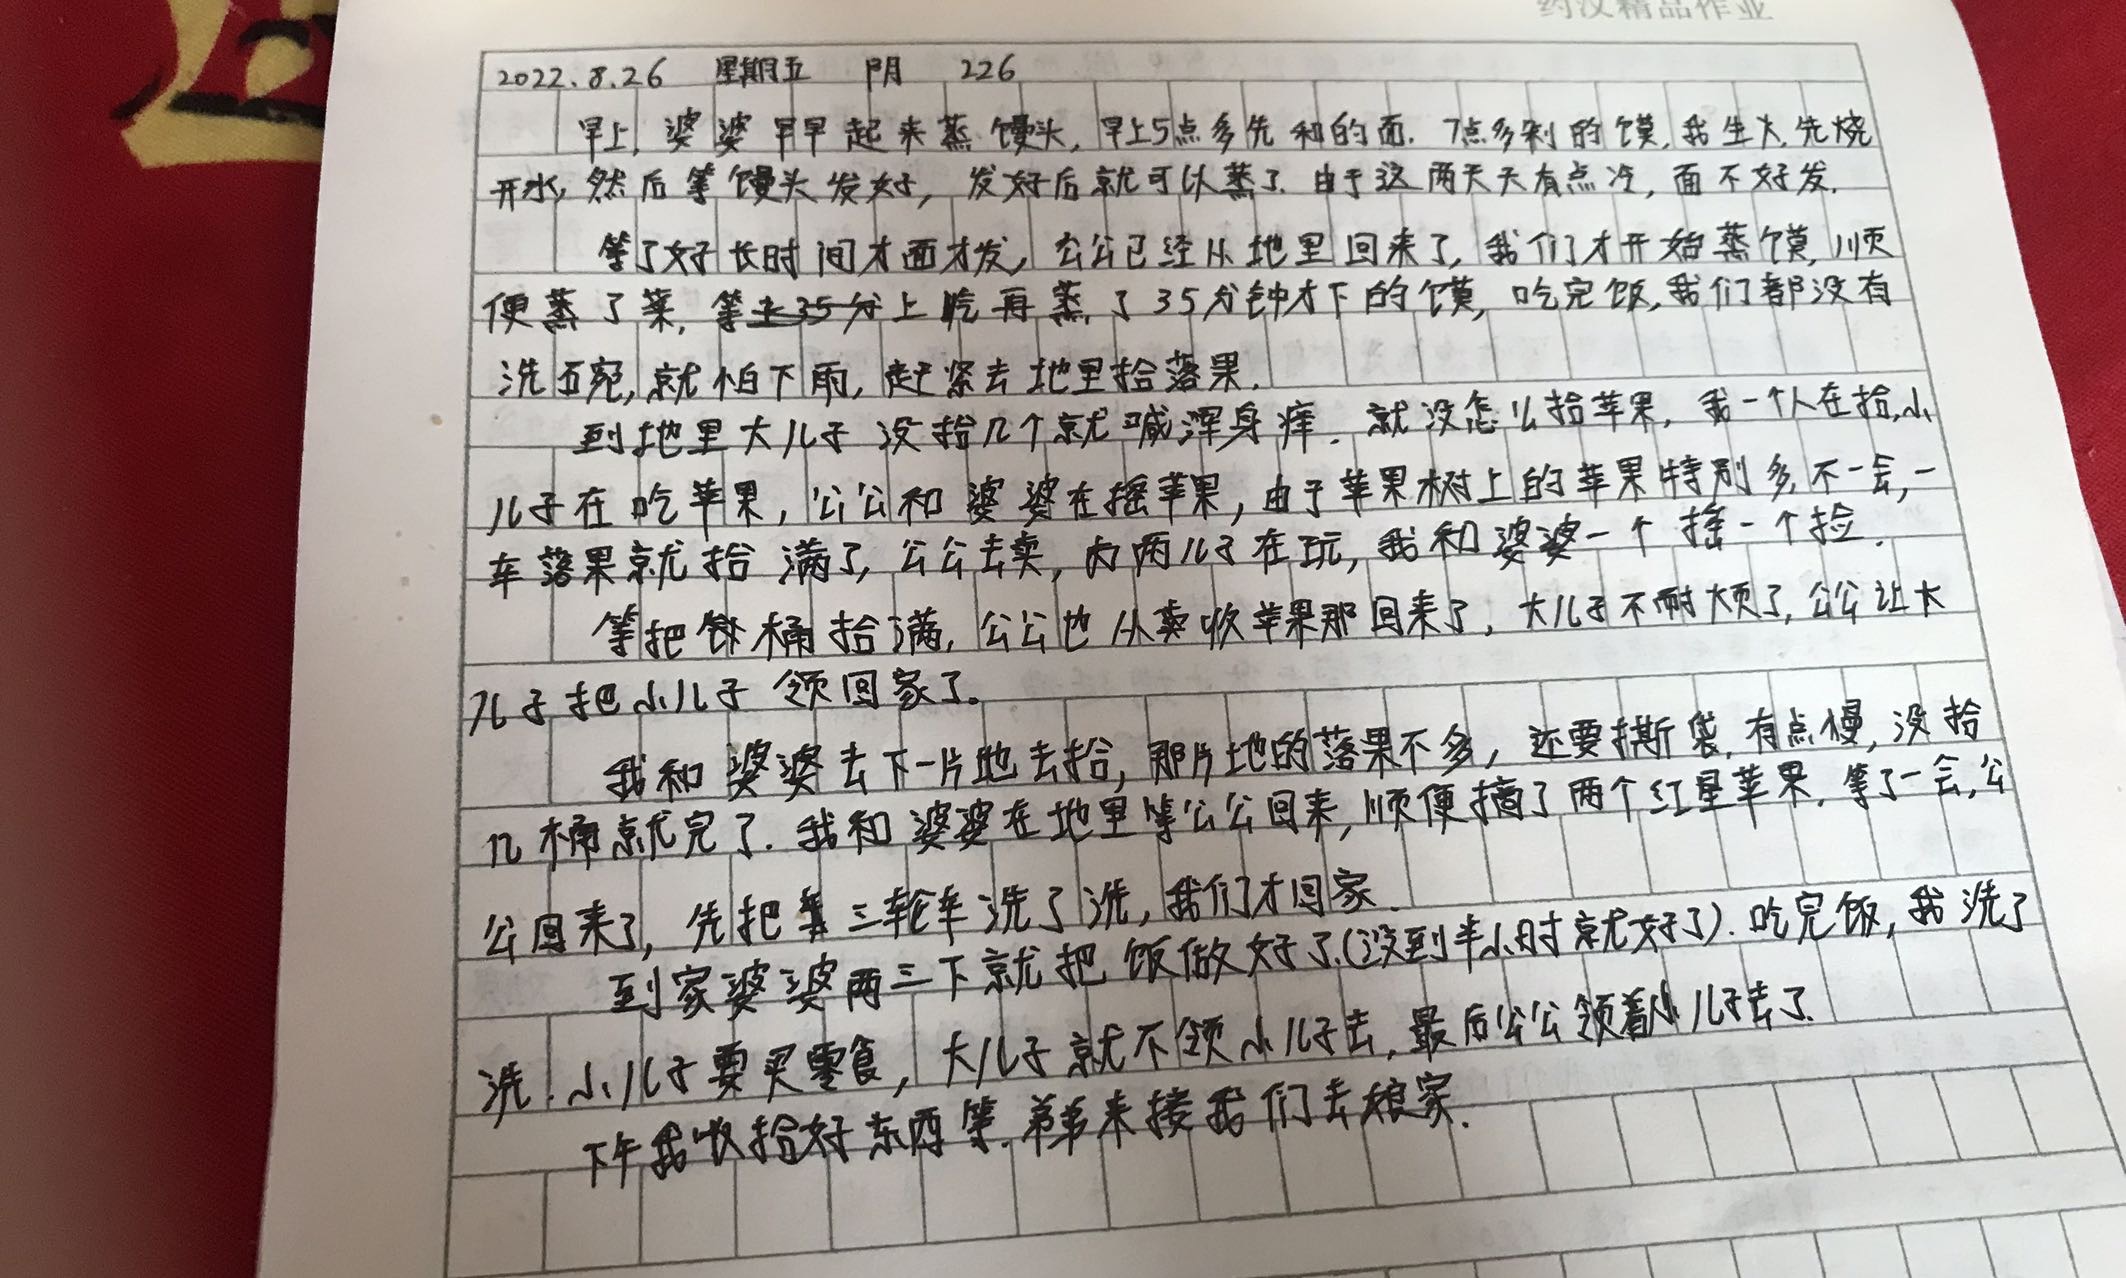 约汉精品作业
2022.8.26 星期五 阴 226
早上,婆婆早早起来蒸馒头,早上5点多先和的面.7点多剁的馍,我生火,先烧
开水,然后等馒头发好,发好后就可以蒸了.由于这两天天有点冷,面不好发.
等了好长时间才面才发,公公已经从地里回来了,我们才开始蒸馍,顺
便蒸了菜,等上35分上吃再蒸了35分钟才下的馍,吃完饭,我们都没有
洗碗,就怕下雨,赶紧去地里拾落果.
到地里大儿子没拾几个就喊浑身痒.就没怎么拾苹果,我一个人在拾,小
儿子在吃苹果,公公和婆婆在摇苹果,由于苹果树上的苹果特别多,不一会,一
车落果就拾满了,公公去卖,内两儿子在玩,我和婆婆一个摇一个捡.
等把桶拾满,公公也从卖收苹果那回来了,大儿子不耐烦了,公公让大
儿子把小儿子领回家了。
我和婆婆去下一片地去拾,那片地的落果不多,还要撕袋,有点慢,没拾
几桶就完了.我和婆婆在地里等公公回来,顺便摘了两个红星苹果.等了一会,公
公回来了,先把三轮车洗了洗,我们才回家.
到家婆婆两三下就把饭做好了.(没到半小时就好了).吃完饭,我洗了
洗.小儿子要买零食,大儿子就不领小儿子去,最后公公领着小儿子去了.
下午我收拾好东西等.弟弟来接我们去娘家.